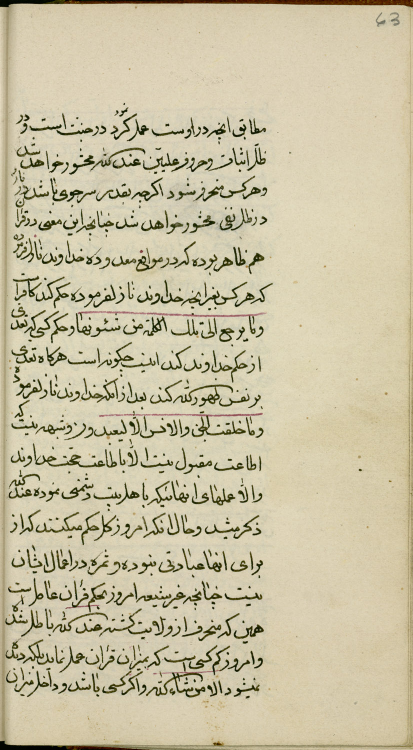 63
مطابق آنچه در اوست عمل کرد در جنت است و در
ظل اثبات و حروف علیین عند الله محشور خواهد شد
و هر کس منحرف شود اگرچه بقدر سر جوی باشد در نار
در ظل نفی محشور خواهد شد چنانچه این معنی در قرآن
هم ظاهر بوده که در مواقع معدوده خداوند نازل فرموده
که هر کس بغیر آنچه خداوند نازل فرموده حکم کند کافر است
و ما یرجع الی تلک الکلمة من شئونها و حکم کسی که تعدی
از حکم خداوند کند اینست چگونه است هرگاه تعدی
بر نفس ظهور الله کند بعد از آنکه خداوند نازل فرموده
و ما خلقت الجن و الانس الا لیعبدون و شبهه نیست که
اطاعت مقبول نیست الا باطاعت حجت خداوند
و الا عملهای آنهائیکه با اهل بیت دشمنی نموده عند الله
ذکر میشد و حال آنکه امروز کل حکم میکنند که از
برای آنها عبادتی نبوده و ثمره در اعمال ایشان
نیست چنانچه غیر شیعه امروز بحکم قرآن عامل است
همین که منحرف از ولایت گشته عند الله باطل شده
و امروز کم کسی است که بمیزان قرآن عمل نماید بلکه دیده
نمیشود الا من شاء الله و اگر کسی باشد و داخل میزان